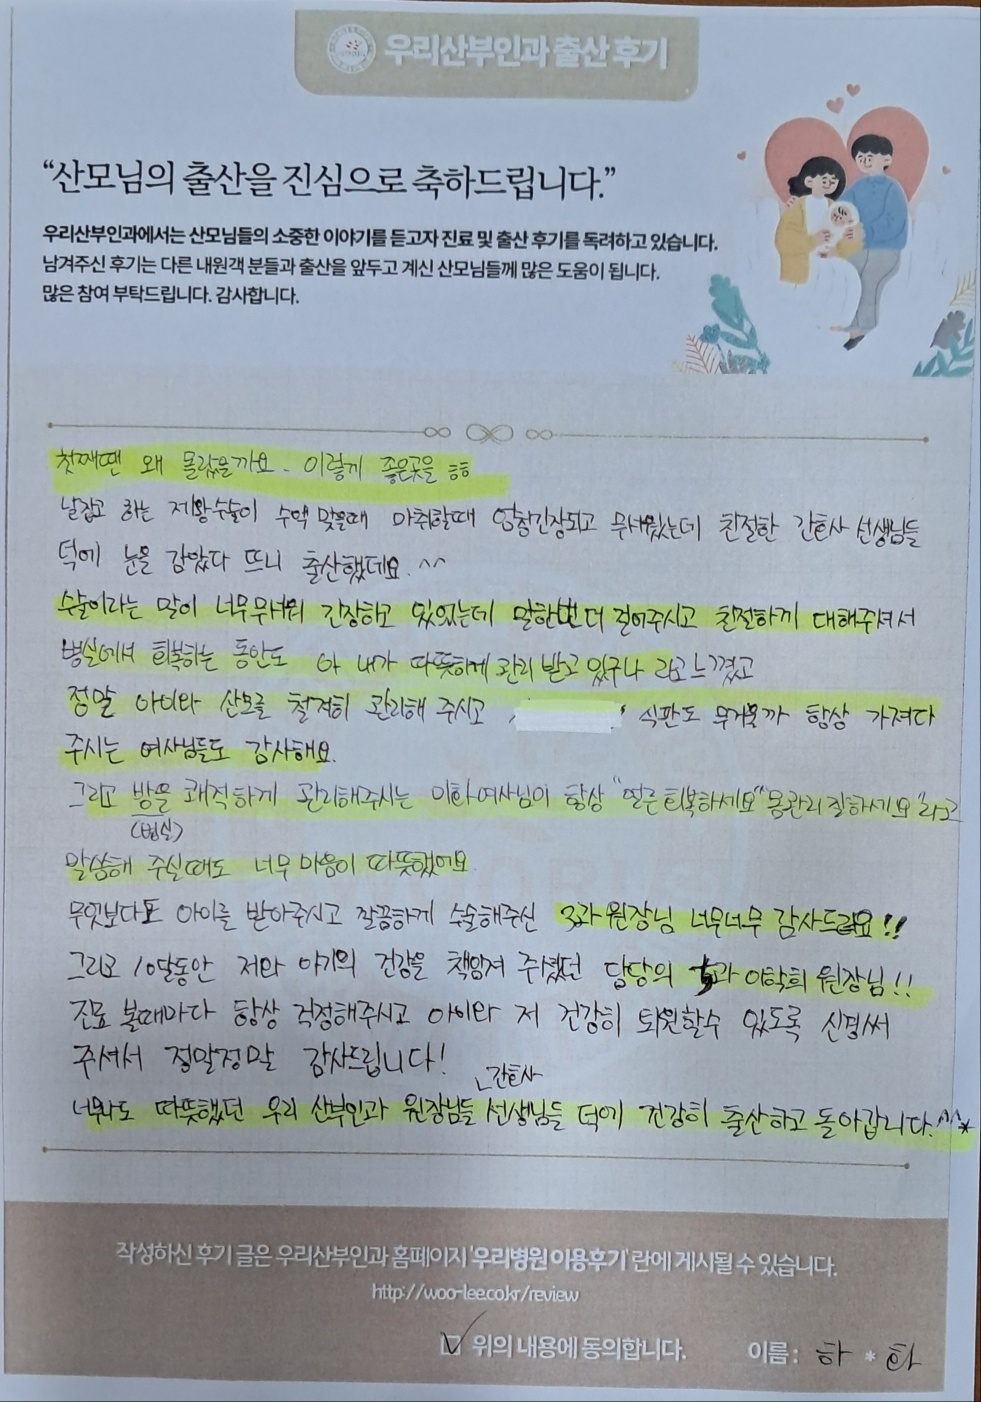 우리산부인과 출산 후기
“산모님의 출산을 진심으로 축하드립니다.”
우리산부인과에서는 산모님들의 소중한 이야기를 듣고자 진료 및 출산 후기를 독려하고 있습니다.
남겨주신 후기는 다른 내원객 분들과 출산을 앞두고 계신 산모님들께 많은 도움이 됩니다.
많은 참여 부탁드립니다. 감사합니다.
첫째땐 왜 몰랐을까요. 이렇게 좋은곳을 ㅎㅎ
날잡고 하는 제왕수술이 수액 맞을때 마취할때 엄청긴장되고 무서웠는데 친절한 간호사 선생님들
덕에 눈을 감았다 뜨니 출산했데요.^^
수술이라는 말이 너무무서워 긴장하고 있었는데 말한번 더 걸어주시고 친절하게 대해주셔서
병실에서 회복하는 동안도 아 내가 따뜻하게 관리 받고 있구나 라고 느꼈고
정말 아이와 산모를 철저히 관리해 주시고 식판도 무거울까 항상 가져다
주시는 여사님들도 감사해요.
그리고 방을 쾌적하게 관리해주시는 미화여사님이 항상 "얼른 회복하세요" "몸관리 잘하세요"라고
(병실)
말씀해 주실때도 너무 마음이 따뜻했어요
무엇보다도 아이를 받아주시고 깔끔하게 수술해주신 3과 원장님 너무너무 감사드려요!!
그리고 10달동안 저와 아기의 건강을 책임져 주셨던 담당의 5과 이학희 원장님!!
진료 볼때마다 항상 걱정해주시고 아이와 저 건강히 퇴원할수 있도록 신경써
주셔서 정말정말 감사드립니다!
간호사
너무나도 따뜻했던 우리 산부인과 원장님들 선생님들 덕에 건강히 출산하고 돌아갑니다.^^*
작성하신 후기 글은 우리산부인과 홈페이지 '우리병원 이용후기' 란에 게시될 수 있습니다.
http://woo-lee.co.kr/review
☑ 위의 내용에 동의합니다. 이름 : 하 * 화